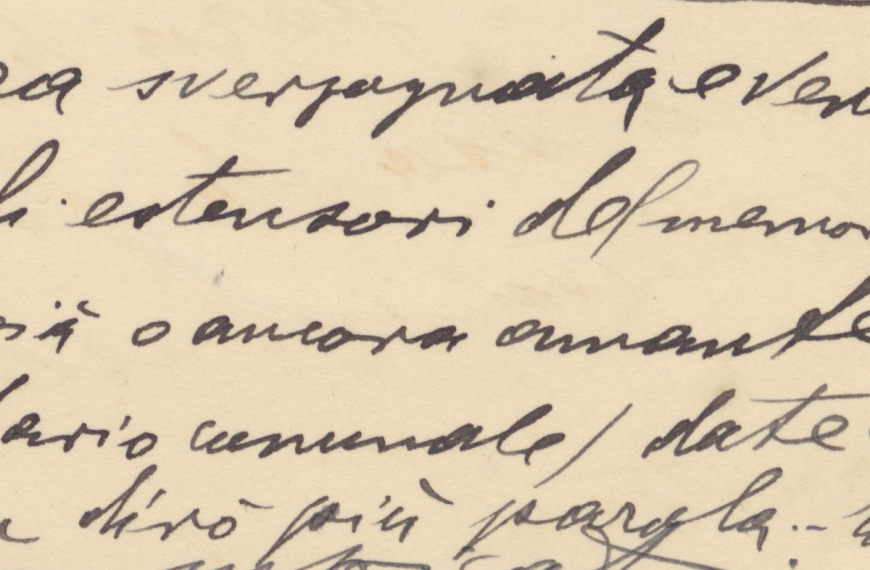 svergognata e ven
estensori del memor
o ancora amante
ario comunale/ date
dirò più parola..